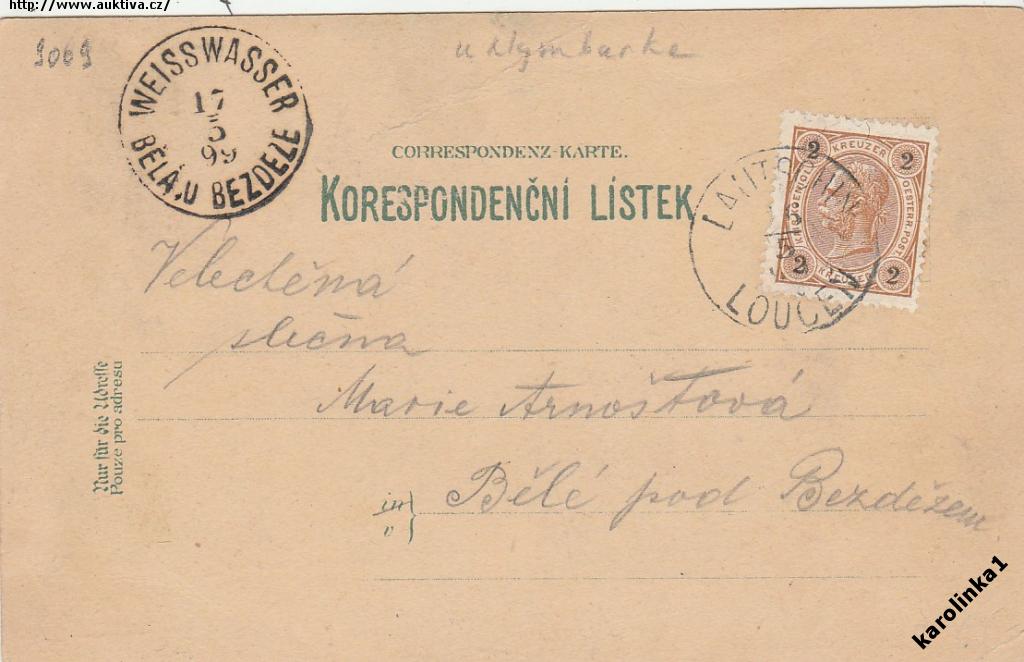 http://www.auktiva.cz/
9069
u Nymburka
WEISSWASSER
17
5
99
BĚLÁ.U BEZDEZE
CORRESPONDENZ-KARTE.
KORESPONDENČNÍ LÍSTEK
2 KREUZER 2
OESTERR. POST.
2 KREUZER 2
LOUCEŇ
Velectěná
slečna
Marie Arnoštová
Bělé pod Bezdězem
in
v
Nur für die Adresse
Pouze pro adresu
karolinka1